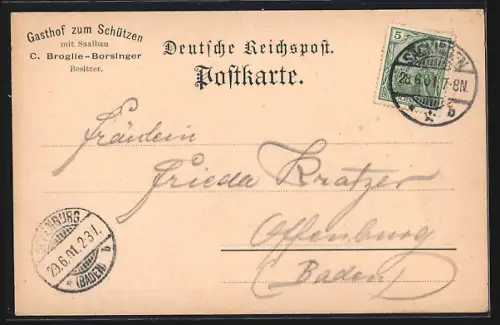 Gasthof zum Schützen
mit Saalbau
C. Broglie-Borsinger
Besitzer.
Deutsche Reichspost.
Postkarte.
5
28.6.01.7-8N.
b
Fräulein
Frieda Kratzer
Offenburg
(Baden)
OFFENBURG.
29.6.01.2-3 V.
(BADEN) b